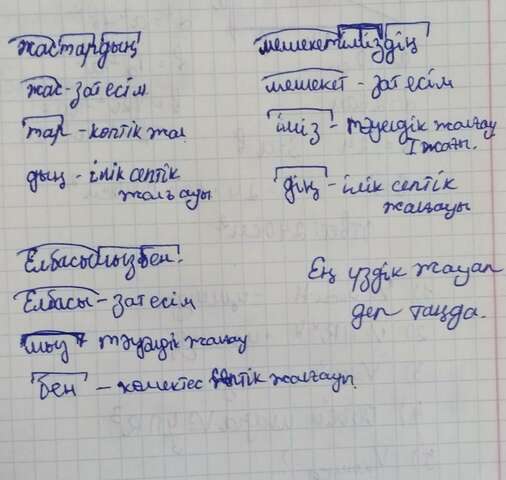 жастардың
жас-зат есім
тар - көптік жал
дың - ілік септік
жалғауы
мешекетіміздің
мешекет - зат есім
іміз - тәуелдік жалғау
I жағы.
дің - ілік септік
жалғауы
Елбасымызбен.
Елбасы - зат есім
мыз тәуелдік жалғау
бен - көмектес септік жалғауы
Ең үздік жауап
деп таңда.